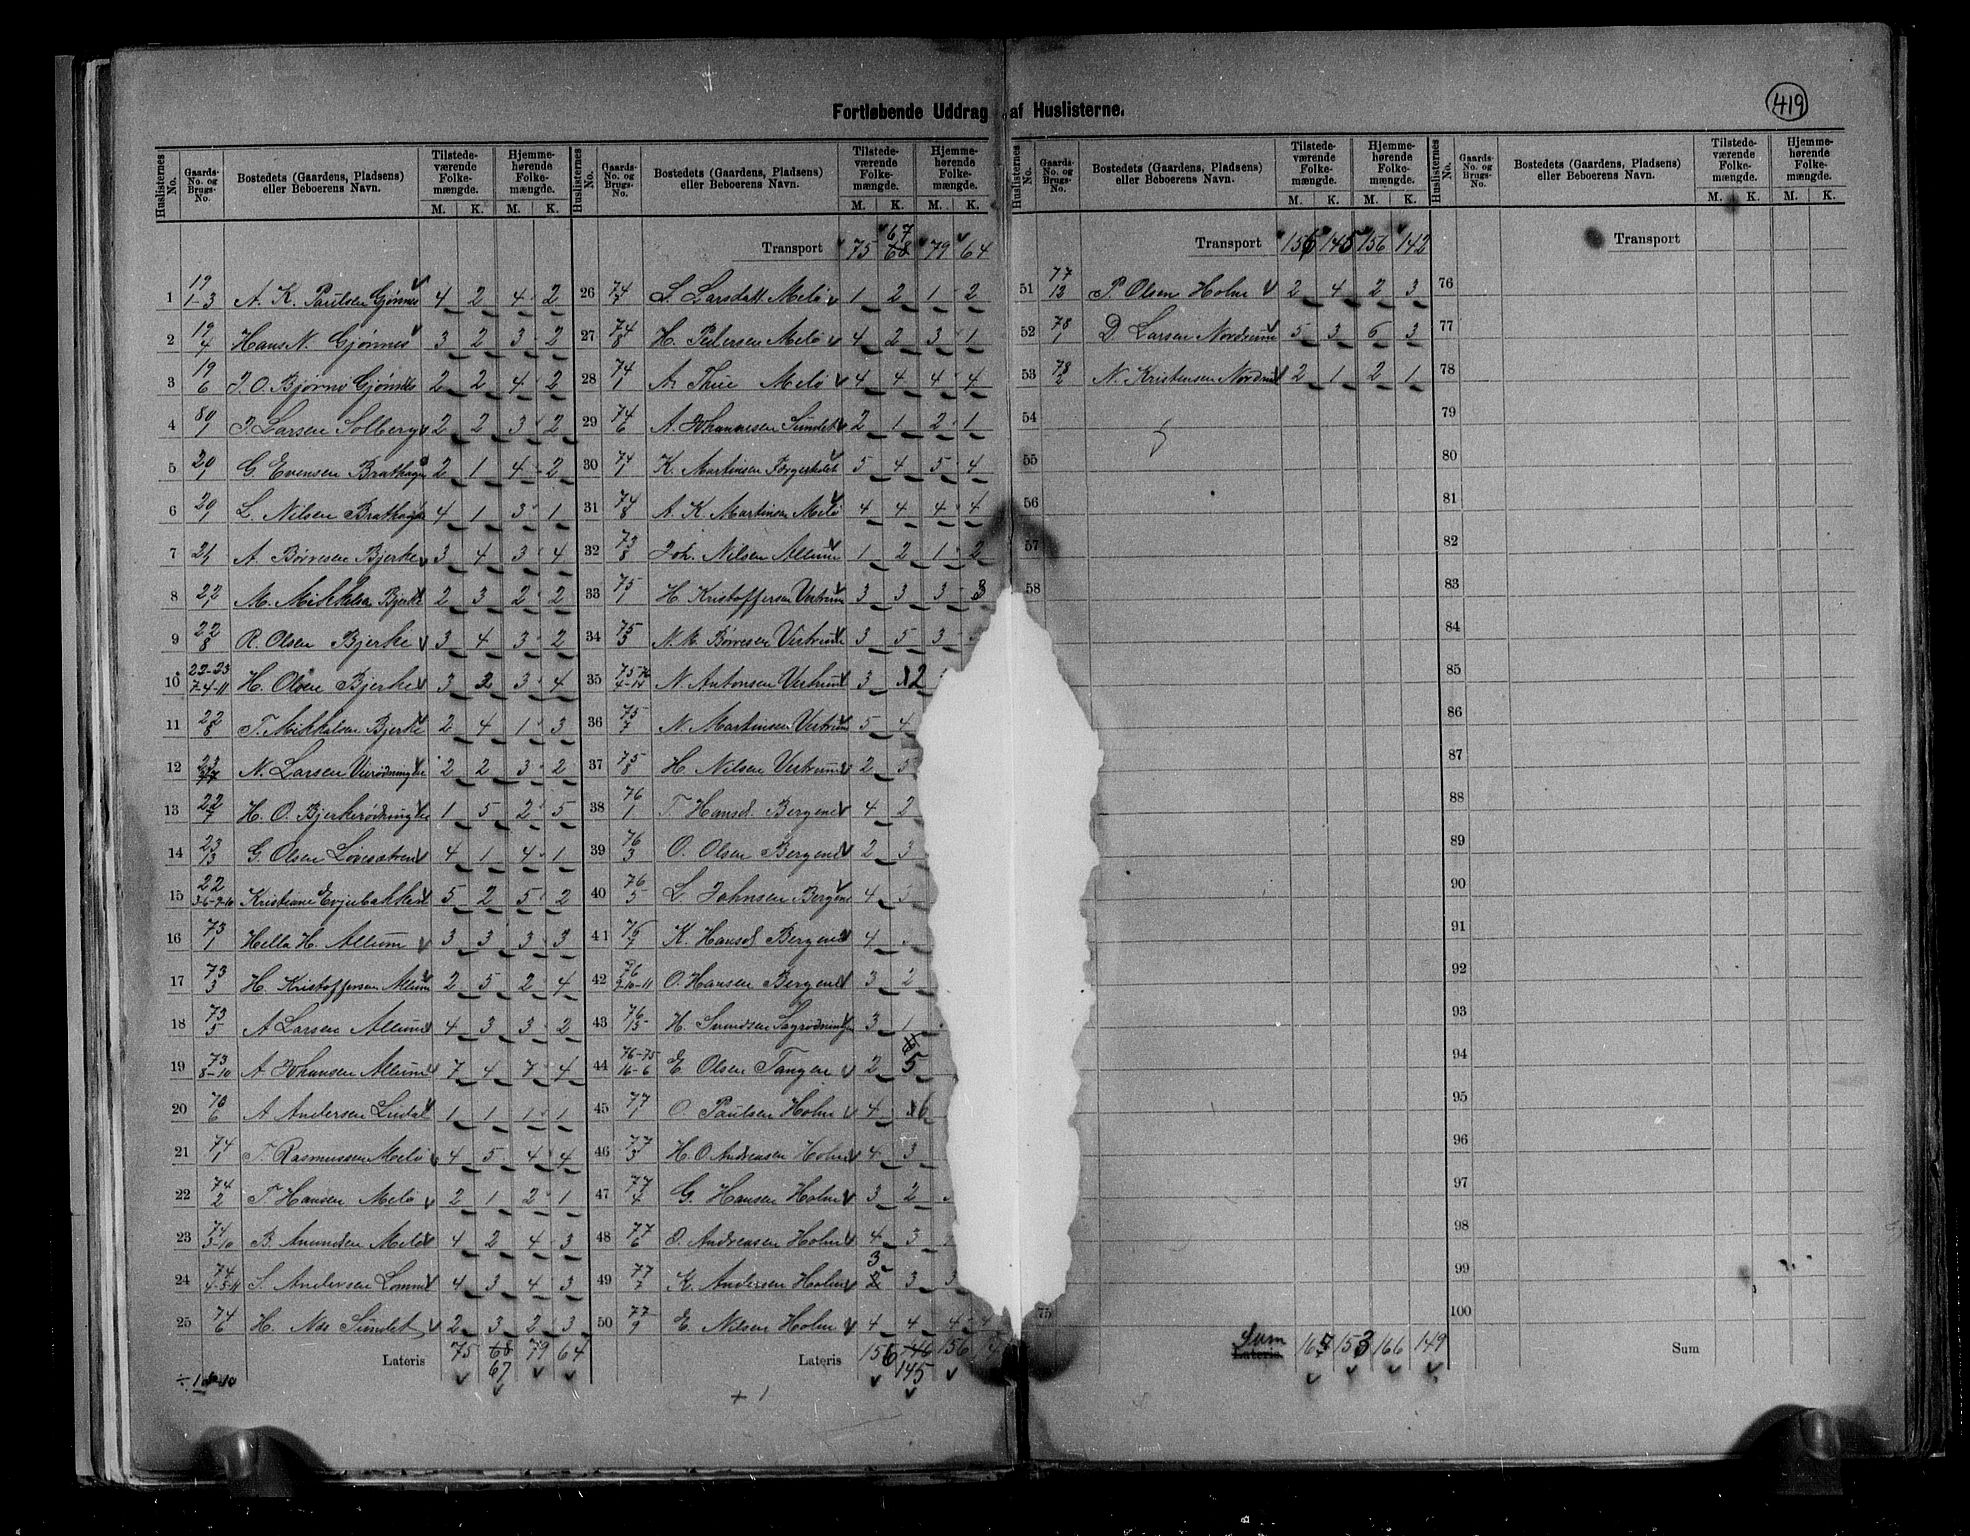 419
Fortløbende Uddrag af Huslisterne.
Huslisternes No. Gaards-No. og Brugs-No. Bostedets (Gaardens, Pladsens) eller Beboerens Navn. Tilstedeværende Folkemængde. M. K. Hjemmehørende Folkemængde. M. K.
1 19/1-3 A. K. Paulsen Gjønnes 4 2 4 2
2 19/4 Hans N. Gjønnes 3 2 3 2
3 19/6 J. O. Bjørns Gjønnes 2 2 4 2
4 80/1 J. Larsen Solberg 2 2 3 2
5 20/1 G. Evensen Brathagen 2 1 4 2
6 20/1 L. Nilsen Brathagen 4 1 3 1
7 21/1 A. Børresen Bjerke 3 4 3 4
8 22/1 M. Mikkelsen Bjerke 2 3 2 2
9 22/8 R. Olsen Bjerke 3 4 3 2
10 22-23/7-4-11 H. Olsen Bjerke 3 2 3 4
11 22/8 T. Mikkalsen Bjerke 2 4 1 3
12 N. Larsen 2 2 3 2
13 22/7 H. O. Bjerkerødningen 1 5 2 5
14 23/13 G. Olsen 4 1 4 1
15 22/3-6-9-10 Kristiane 5 2 5 2
16 73/1 Hella H. Allum 3 3 3 3
17 73/3 H. Kristoffersen Allum 2 5 2 4
18 73/5 A Larsen Allum 4 3 3 2
19 73/8-10 A. Johansen Allum 7 4 7 4
20 70/6 A Andersen Lindal 1 1 1 1
21 74/1 T. Rasmussen Melø 4 5 4 4
22 74/2 T. Hansen Melø 2 1 2 1
23 74/3-10 B. Amundsen Melø 4 2 4 3
24 S. Andersen 4 3 4 3
25 74/6 H. Næs Sundet 2 3 2 3
Lateris 75 68 67 79 64
Huslisternes No. Gaards-No. og Brugs-No. Bostedets (Gaardens, Pladsens) eller Beboerens Navn. Tilstedeværende Folkemængde. M. K. Hjemmehørende Folkemængde. M. K.
Transport 75 67 68 79 64
26 74/7 L. Larsdatt. Melø 1 2 1 2
27 74/8 H. Pedersen Melø 4 2 3 1
28 74/1 A. Thue Melø 4 4 4 4
29 74/6 A. Johannesen Sundet 2 1 2 1
30 74/1 K. Martinsen 5 4 5 4
31 74/8 A. K. Martinsen Melø 4 4 4 4
32 73/8 Joh. Nilsen Allum 1 2 1 2
33 75/1 H. Kristoffersen Vestrum 3 3 3 3
34 75/3 N. M. Børresen Vestrum 3 5 3
35 75-76/4-14 N. Antonsen Vestrum 3 2
36 75/7 N. Martinsen Vestrum 5 4
37 75/8 H. Nilsen Vestrum 2 5
38 76/1 T. Hansd. Bergene 4 2
39 76/3 O. Olsen Bergene 2 3
40 76/5 L. Johnsen Bergene 4
41 76/7 K. Hansd. Bergene 4
42 76/9-10-11 O. Hansen Bergene 3 2
43 76/13 H. Svendsen Sagrødningen 3 1
44 76-75/16-6 E. Olsen Tangen 2 5
45 77/1 O. Paulsen Holm 4 6
46 77/3 H. O. Andreasen Holm 4 3
47 77/4 G. Hansen Holm 3 2
48 77/6 O. Andreasen Holm 4 3
49 77/7 K. Andersen Holm 3 3 3
50 77/9 E. Nilsen Holm 4 4 4 4
Lateris 156 146 145 156
+ 1
Huslisternes No. Gaards-No. og Brugs-No. Bostedets (Gaardens, Pladsens) eller Beboerens Navn. Tilstedeværende Folkemængde. M. K. Hjemmehørende Folkemængde. M. K.
Transport 156 145 156 142
51 77/12 P. Olsen Holm 2 4 2 3
52 78/1 D. Larsen Nordrum 5 3 6 3
53 78/2 N. Kristensen Nordrum 2 1 2 1
54
55
56
57
58
75
Sum Lateris 165 153 166 149
Huslisternes No. Gaards-No. og Brugs-No. Bostedets (Gaardens, Pladsens) eller Beboerens Navn. Tilstedeværende Folkemængde. M. K. Hjemmehørende Folkemængde. M. K.
Transport
76
77
78
79
80
81
82
83
84
85
86
87
88
89
90
91
92
93
94
95
96
97
98
99
100
Sum